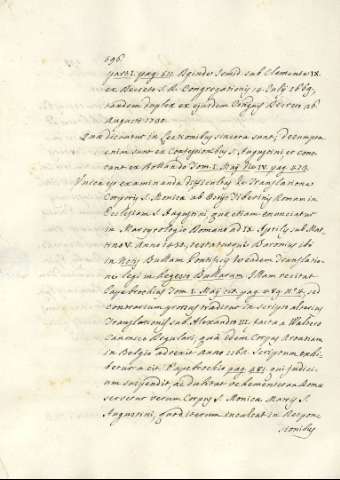 596
part. 2. pag. 611. Deinde Semid. sub Clemente IX.
ex Decreto S. R. Congregationis 14. Julij 1669,
tandem duplex ex ejusdem Decreto
Augusti 1730.
Quae dicuntur in Lectionibus sincera sunt, decerpta
enim sunt ex Confessionibus S. Augustini et constant
ex Bollando Tom. I. Maij die IV. pag. 473.
Unica est examinanda difficultas de Translatione
Corporis S. Monicae ab Ostijs Tiberinis Romam in
Ecclesiam S. Augustini, quae etiam enunciatur
in Martyrologio Romano ad IX. Aprilis sub Martino
V. Anno 1430, testaturque Baronius ibi
in Notis Bullam Pontificis de eadem Translatione
legi in Regesto Bullarum. Illam recitat
Papebrochius Tom. I. Maij cit. pag. 489 n. 4, sed
contrarium prorsus traditur in scripto alterius
Translationis sub Alexandro III. facta a Waltero
Canonico Regulari, qua idem Corpus Aroasiam
in Belgio advenit Anno 1162. Scriptum exhibetur
a cit. Papebrochio pag. 481, qui judicium
suspendit, ac dubitat vehementer an Romae
servetur verum Corpus S. Monicae Matris S.
Augustini, quod iterum inculcat in Respon-
sionibus